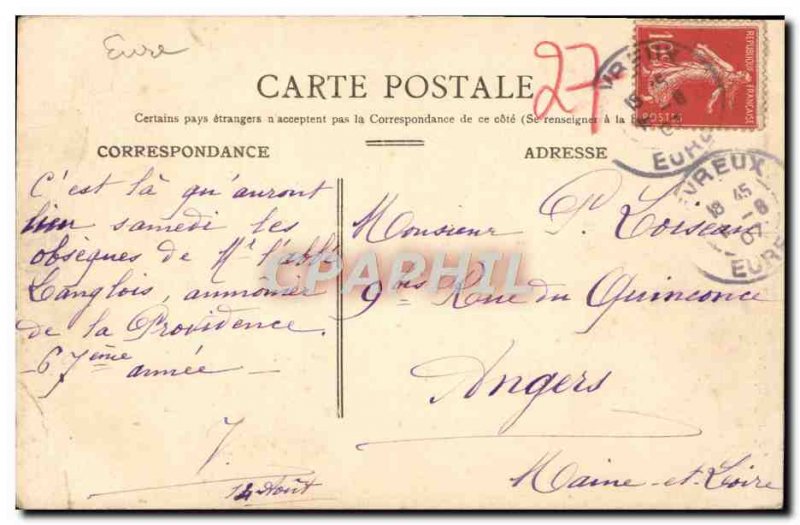 Eure
27
CARTE POSTALE
Certains pays étrangers n'acceptent pas la Correspondance de ce côté (Se renseigner à la
CORRESPONDANCE
ADRESSE
C'est là qu'auront
lieu samedi les
obsèques de Mr l'abbé
Langlois, aumonier
de la Providence.
- 67ème année -
14 Août
Monsieur P. Loiseau
9 bis Rue du Quinconce
Angers
Maine-et-Loire
REPUBLIQUE FRANÇAISE
POSTES
10
EVREUX
18 45
-8
07
EURE
CPAPHIL